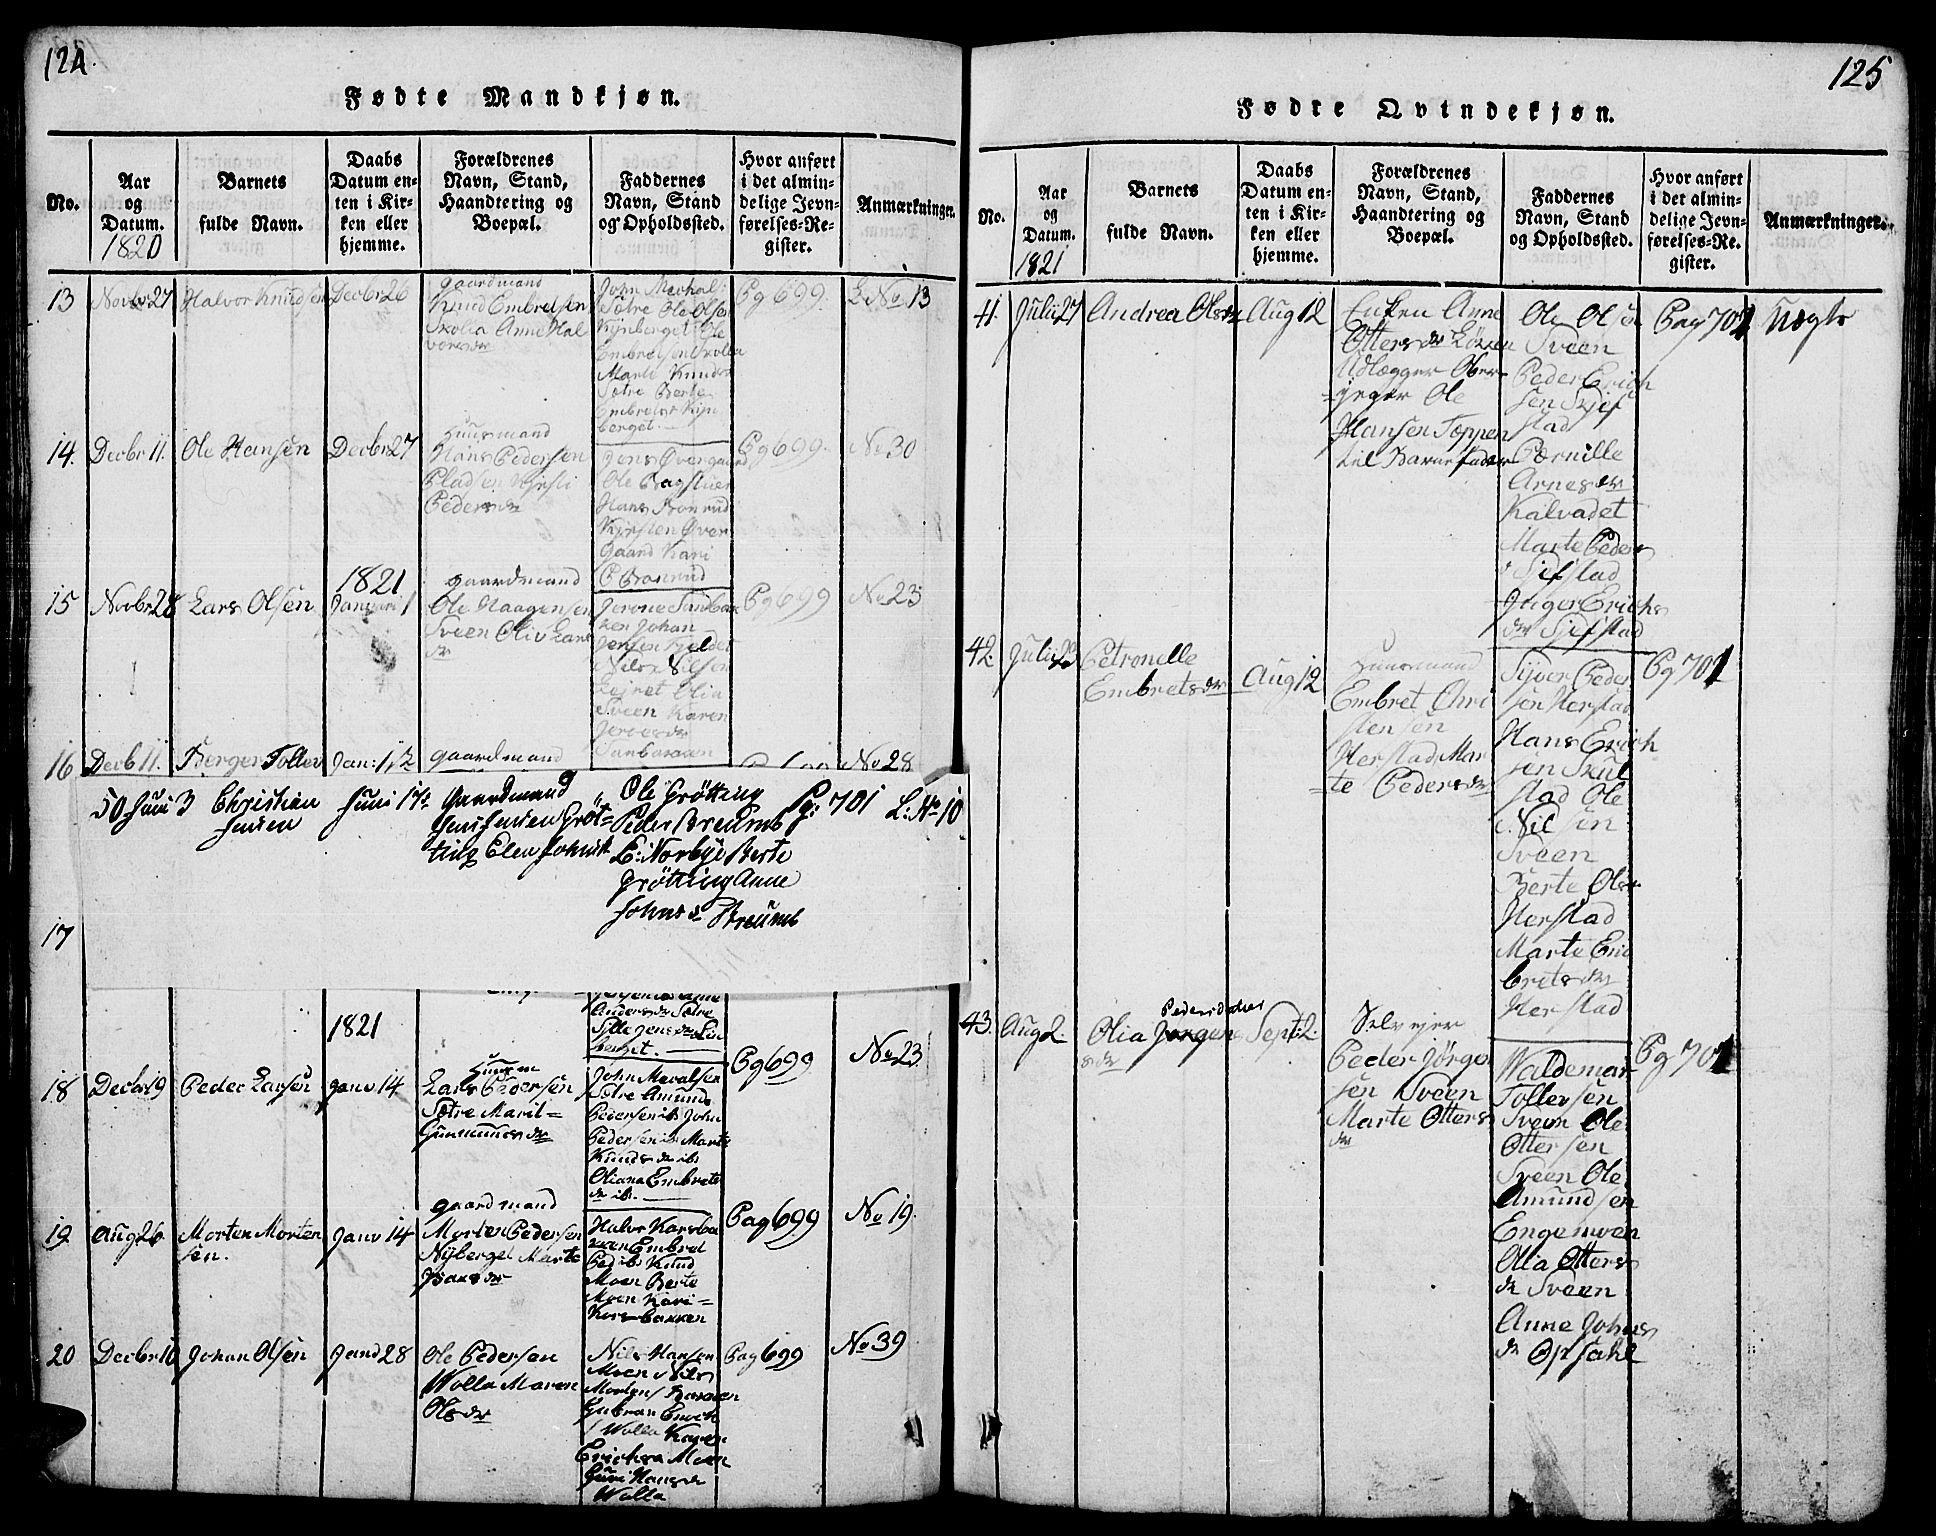 124.
Fødte Mandkjøn.
No.
Aar
og
Datum.
1820
Barnets
fulde Navn.
Daabs
Datum en-
ten i Kir-
ken eller
hjemme.
Forældrenes
Navn, Stand,
Haandtering og
Boepæl.
Faddernes
Navn, Stand
og Opholdssted.
Hvor anført
i det almin-
delige Jevn-
førelses-Re-
gister.
Anmærkninger.
13
Novbr 27
Halvor Knudsen
Decbr 26
gaardmand
Knud Embretsen
Skolla Anne Hal
vorsdr
Sætre Ole Olsen
Nyberget Ole
Embretsen Skolla
Marte Knudsdr
Sætre Berte
Embretsdr Ny
berget.
Pg 699.
L No 13
14.
Decbr 11.
Ole Hansen
Decbr 27
Huusmand
Hans Pedersen
Pladsen
Pedersdr
Jens Øvergaard
Ole Bagstuen
Hans
Kirsten Øver
gaard Kari
Pg 699.
No 30
15
Novbr 28
Lars Olsen
1821
Januari 1
gaardmand
Ole Haagensen
Sveen Oliv Lars
dr
Johan
Jensen
Nils Nilsen
Olia
Sveen Karen
Pg 699
No 23
16
Decb 11.
Berger Tollev
Jan: 1,2
gaardmand
No 28
50 Juni 3
Christian
Jensen
Juni 17:
Gaardmand
Jens Jensen Grøt-
ting Elen Johnsdr
Ole Grøtting
Peder Breumb
E: Norbye Berte
Grøtting Anne
Johnsdr Breumb
Pg: 701
L: No 10
17
Andersdr Sætre
berget.
18
Decbr 19
Peder Larsen
1821
Janv 14
Huusm
Lars Pedersen
Sætre Marit-
Gunmundsdr
John
Sætre Amund
Pedersen ib John
Pedersen ib Marte
Knudsdr ib:
Oliana Embrets
dr ib.
Pg 699
No 23
19
Aug 26
Morten Morten
sen.
Janv 14
gaardmand
Morten Pedersen
Nyberget Marte
Isaksdr
Halvor Korsba
kken Embret
Ped ib: Knud
Moen Berte
Moen Kari-
Korsbakken
Pag 699
No 19.
20
Decbr 10
Johan Olsen
Jand 28
Ole Pedersen
Wolla Maren
Olsdr
Nils Hansen
Moen Nils
Mortens Bakken
Gubran Enoch
Wolla Karen
Erichsdr Moen
Guri Hansdr
Wolla
Pag 699
No 39
125
Fødre Qvindekjøn.
No.
Aar
og
Datum.
1821
Barnets
fulde Navn.
Daabs
Datum en-
ten i Kir-
ken eller
hjemme.
Forældrenes
Navn, Stand,
Haandtering og
Boepæl.
Faddernes
Navn, Stand
og Opholdssted.
Hvor anført
i det almin-
delige Jevn-
førelses-Re-
gister.
Anmærkninger.
41.
Julii 27
Andrea Olsdr
Aug 12
Enken Anne
Ottersdr Løkken
Udlægger Ober-
jæger Ole
Hansen Toppen
til Barnefader
Ole Olsen
Sveen
Peder Erich
sen Sjef
stad
Pernille
Arnesdr
Kalvadet
Marte Peders
dr Sjefstad
Inger Erichs
dr Sjefstad
Pag 701
Uægte
42.
Julii 23
Petronelle
Embretsdr
Aug 12
Huusmand
Embret Chri
stensen
Herstad Mar
te Pedersdr
Syver Peder
sen Herstad
Hans Erich
sen Skul
stad Ole
Nilsen
Sveen
Berte Olsdr
Herstad
Marte Em
bretsdr
Herstad
Pg 701
43.
Aug 2.
Pedersdatter
Olia Jørgen
sdr
Sept: 2.
Selvejer
Peder Jørgen
sen Sveen
Marte Otters
dr
Waldemar
Tollersen
Sveen Ole
Ottersen
Sveen Ole
Amundsen
Engemoen
Olia Otters
dr Sveen
Anne Johns
dr Opsahl
Pg 701